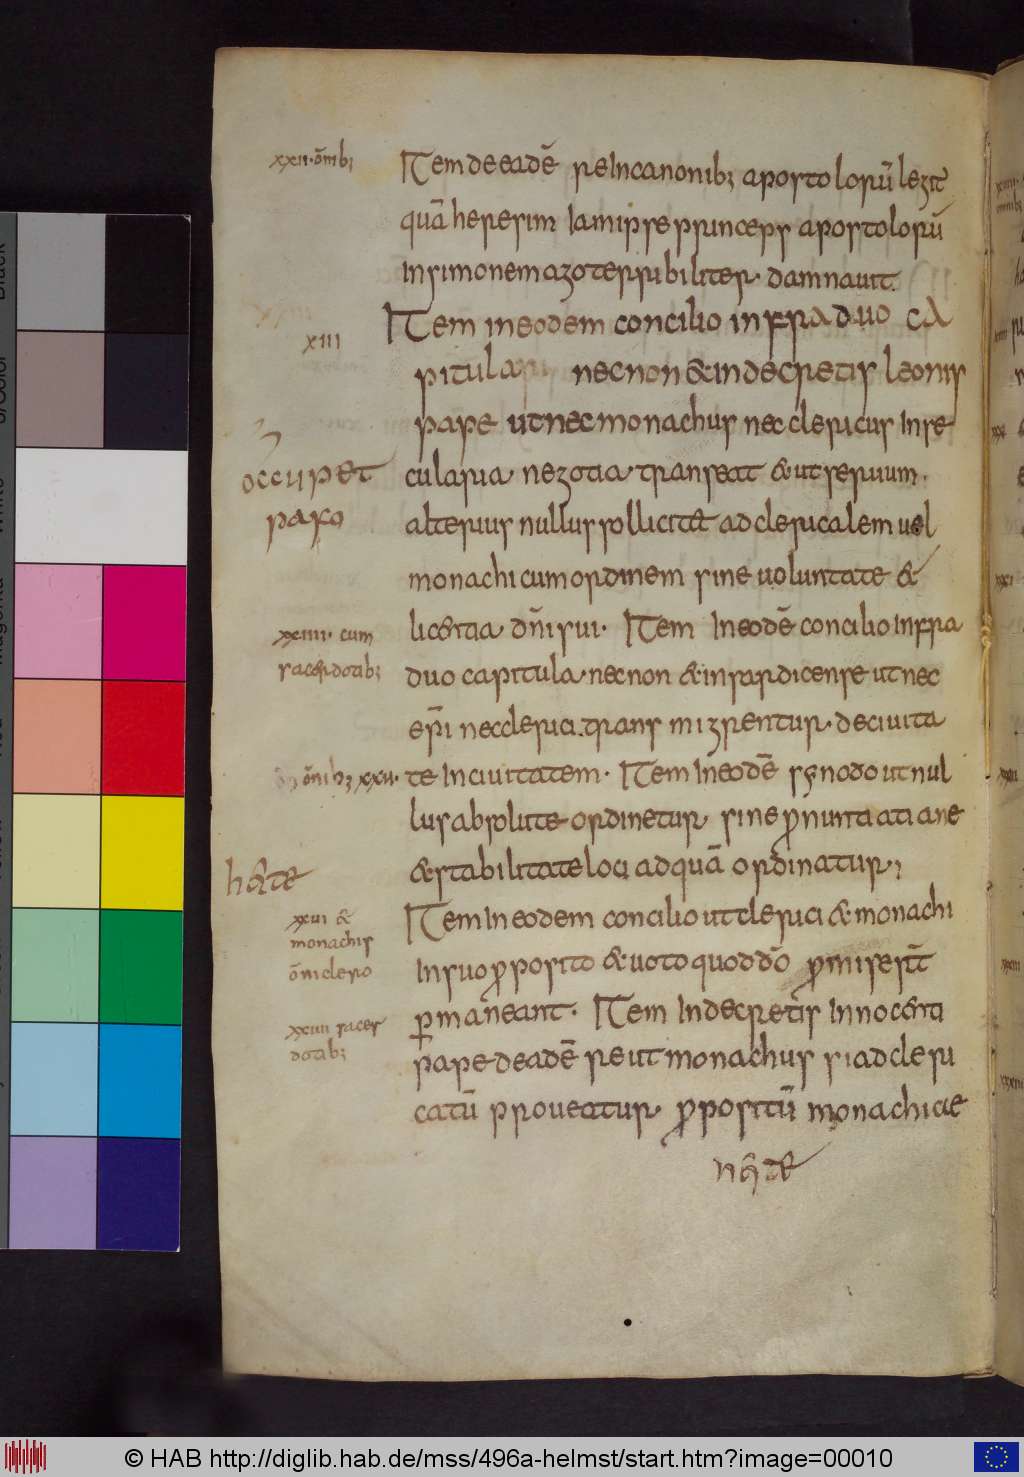 xxii. õmnib;
Item de eadē re In canonib; apostolorū legit
quā heresim Iam ipse princeps apostolorū
In simonem mago terribiliter damnauit.
xiii
Item in eodem concilio infra duo ca
pitula nec non & in decretis leonis
pape ut nec monachus nec clericus In se
occupet
cularia negotia transeat & ut seruum
alterius nullus sollicitet ad clericalem uel
monachicum ordinem sine uoluntate &
licentia dñi sui. Item In eodē concilio Infra
xxiiii. cum
sacerdotib;
duo capitula nec non & in sardicense ut nec
epi nec clerici transmigrentur de ciuita
õmib; xxii.
te In ciuitatem. Item In eodē synodo ut nul
lus absolute ordinetur sine pronuntiatiane
& stabilitate loci ad quā ordinatur;
xxvi &
monachis
õm clero
Item In eodem concilio ut clerici & monachi
In suo proposito & uoto quod dō promiserūt
permaneant. Item In decretis Innocenti
xxiiii sacer
dotib;
pape de eadē re ut monachus si ad cleri
catū proueatur propositū monachice
© HAB http://diglib.hab.de/mss/496a-helmst/start.htm?image=00010